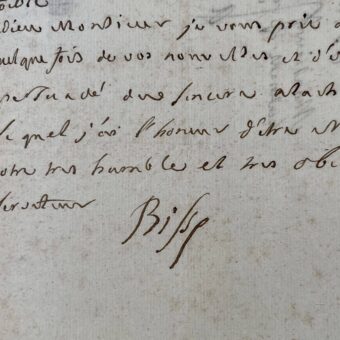 dieu Monsieur je vous prie d
quelque fois de vos nouvelles et d'
persuadé du sincere attach
lequel j'ai l'honneur d'etre
votre tres humble et tres obé
serviteur